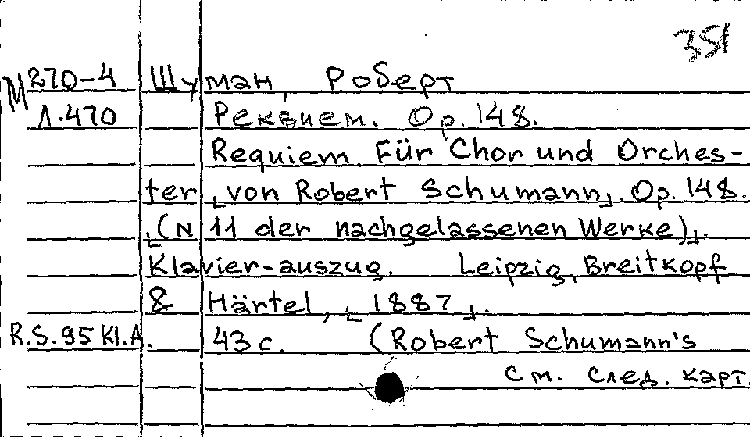 351
М 270-4 Шуман, Роберт
Л.470 Реквием. Op. 148.
Requiem. Für Chor und Orches-
ter [von Robert Schumann]. Op. 148.
[(N 11 der nachgelassenen Werke)].
Klavier-auszug. Leipzig, Breitkopf
& Härtel, [1887].
R.S.95 Kl.A. 43 с. (Robert Schumann's
См. след. карт.